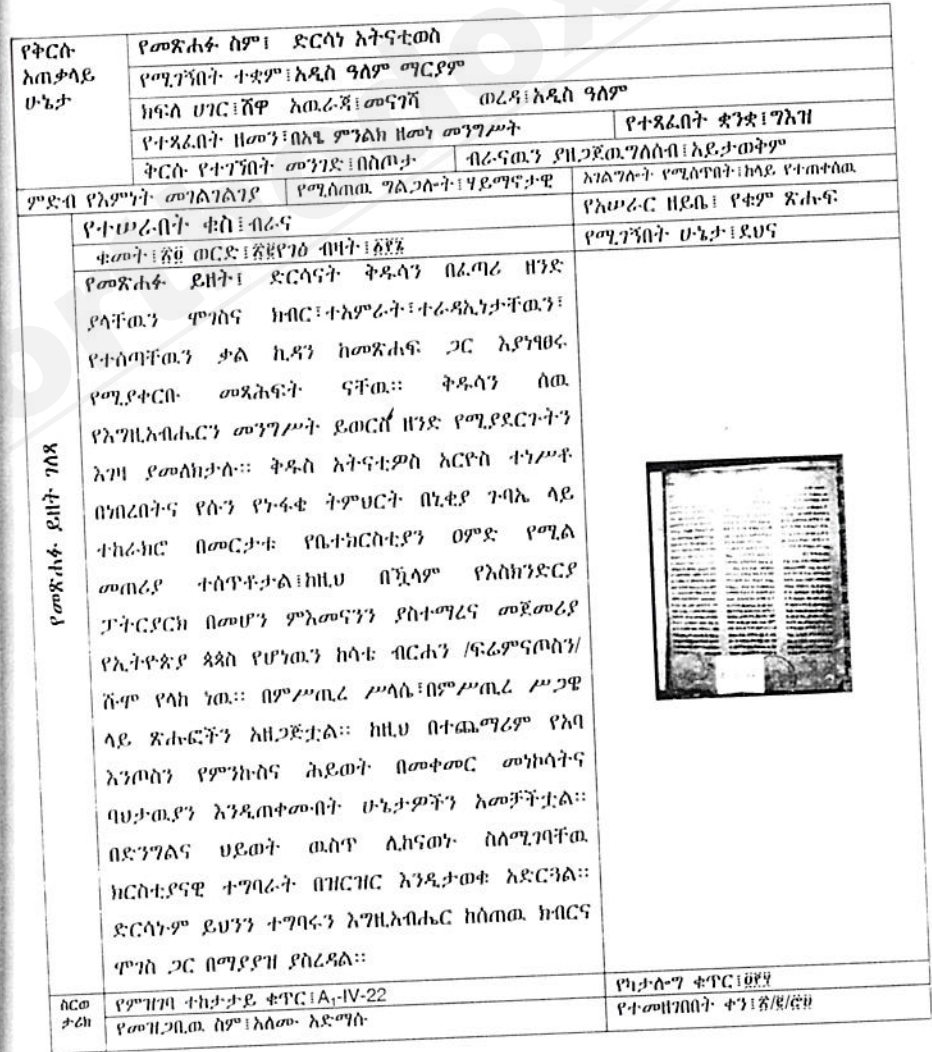 የቅርሱ አጠቃላይ ሁኔታ
የመጽሐፉ ስም፤ ድርሳነ አትናቴወስ
የሚገኝበት ተቋም፤አዲስ ዓለም ማርያም
ክፍለ ሀገር፤ሸዋ አዉራጃ፤መናገሻ ወረዳ፤አዲስ ዓለም
የተጻፈበት ዘመን፤በአፄ ምንልክ ዘመነ መንግሥት የተጻፈበት ቋንቋ፤ግእዝ
ቅርሱ የተገኘበት መንገድ፤በስጦታ ብራናዉን ያዘጋጀዉግለሰብ፤አይታወቅም
ምድብ የእምነት መገልገልገያ የሚሰጠዉ ግልጋሎት፤ሃይማኖታዊ አገልግሎት የሚሰጥበት፤ከላይ የተጠቀሰዉ
የተሠራበት ቁስ፤ብራና የአሠራር ዘይቤ፤ የቁም ጽሑፍ
ቁመት፤ ወርድ፤ የገፅ ብዛት፤ የሚገኝበት ሁኔታ፤ደህና
የመጽሐፉ ይዘት ገለጻ
የመጽሐፉ ይዘት፤ ድርሳናት ቅዱሳን በፈጣሪ ዘንድ
ያላቸዉን ሞገስና ክብር፤ተአምራት፤ተራዳኢነታቸዉን፤
የተሰጣቸዉን ቃል ኪዳን ከመጽሐፍ ጋር እያነፃፀሩ
የሚያቀርቡ መጻሕፍት ናቸዉ። ቅዱሳን ሰዉ
የእግዚአብሔርን መንግሥት ይወርስ ዘንድ የሚያደርጉትን
እገዛ ያመለክታሉ። ቅዱስ አትናቴዎስ አርዮስ ተነሥቶ
በነበረበትና የሱን የኑፋቄ ትምህርት በኒቂያ ጉባኤ ላይ
ተከራክሮ በመርታቱ የቤተክርስቲያን ዐምድ የሚል
መጠሪያ ተሰጥቶታል፤ከዚህ በኟላም የእስክንድርያ
ፓትርያርክ በመሆን ምእመናንን ያስተማረና መጀመሪያ
የኢትዮጵያ ጳጳስ የሆነዉን ከሳቴ ብርሐን /ፍሬምናጦስን/
ሹሞ የላከ ነዉ። በምሥጢረ ሥላሴ፤በምሥጢረ ሥጋዌ
ላይ ጽሑፎችን አዘጋጅቷል። ከዚህ በተጨማሪም የአባ
እንጦስን የምንኩስና ሕይወት በመቀመር መነኮሳትና
ባህታዉያን እንዲጠቀሙበት ሁኔታዎችን አመቻችቷል።
በድንግልና ህይወት ዉስጥ ሊከናወኑ ስለሚገባቸዉ
ክርስቲያናዊ ተግባራት በዝርዝር እንዲታወቁ አድርጓል።
ድርሳኑም ይህንን ተግባሩን እግዚአብሔር ከሰጠዉ ክብርና
ሞገስ ጋር በማያያዝ ያስረዳል።
ስርወ ታሪክ
የምዝገባ ተከታታይ ቁጥር፤A₁-IV-22 የካታሎግ ቁጥር፤
የመዝጋቢዉ ስም፤አለሙ አድማሱ የተመዘገበበት ቀን፤